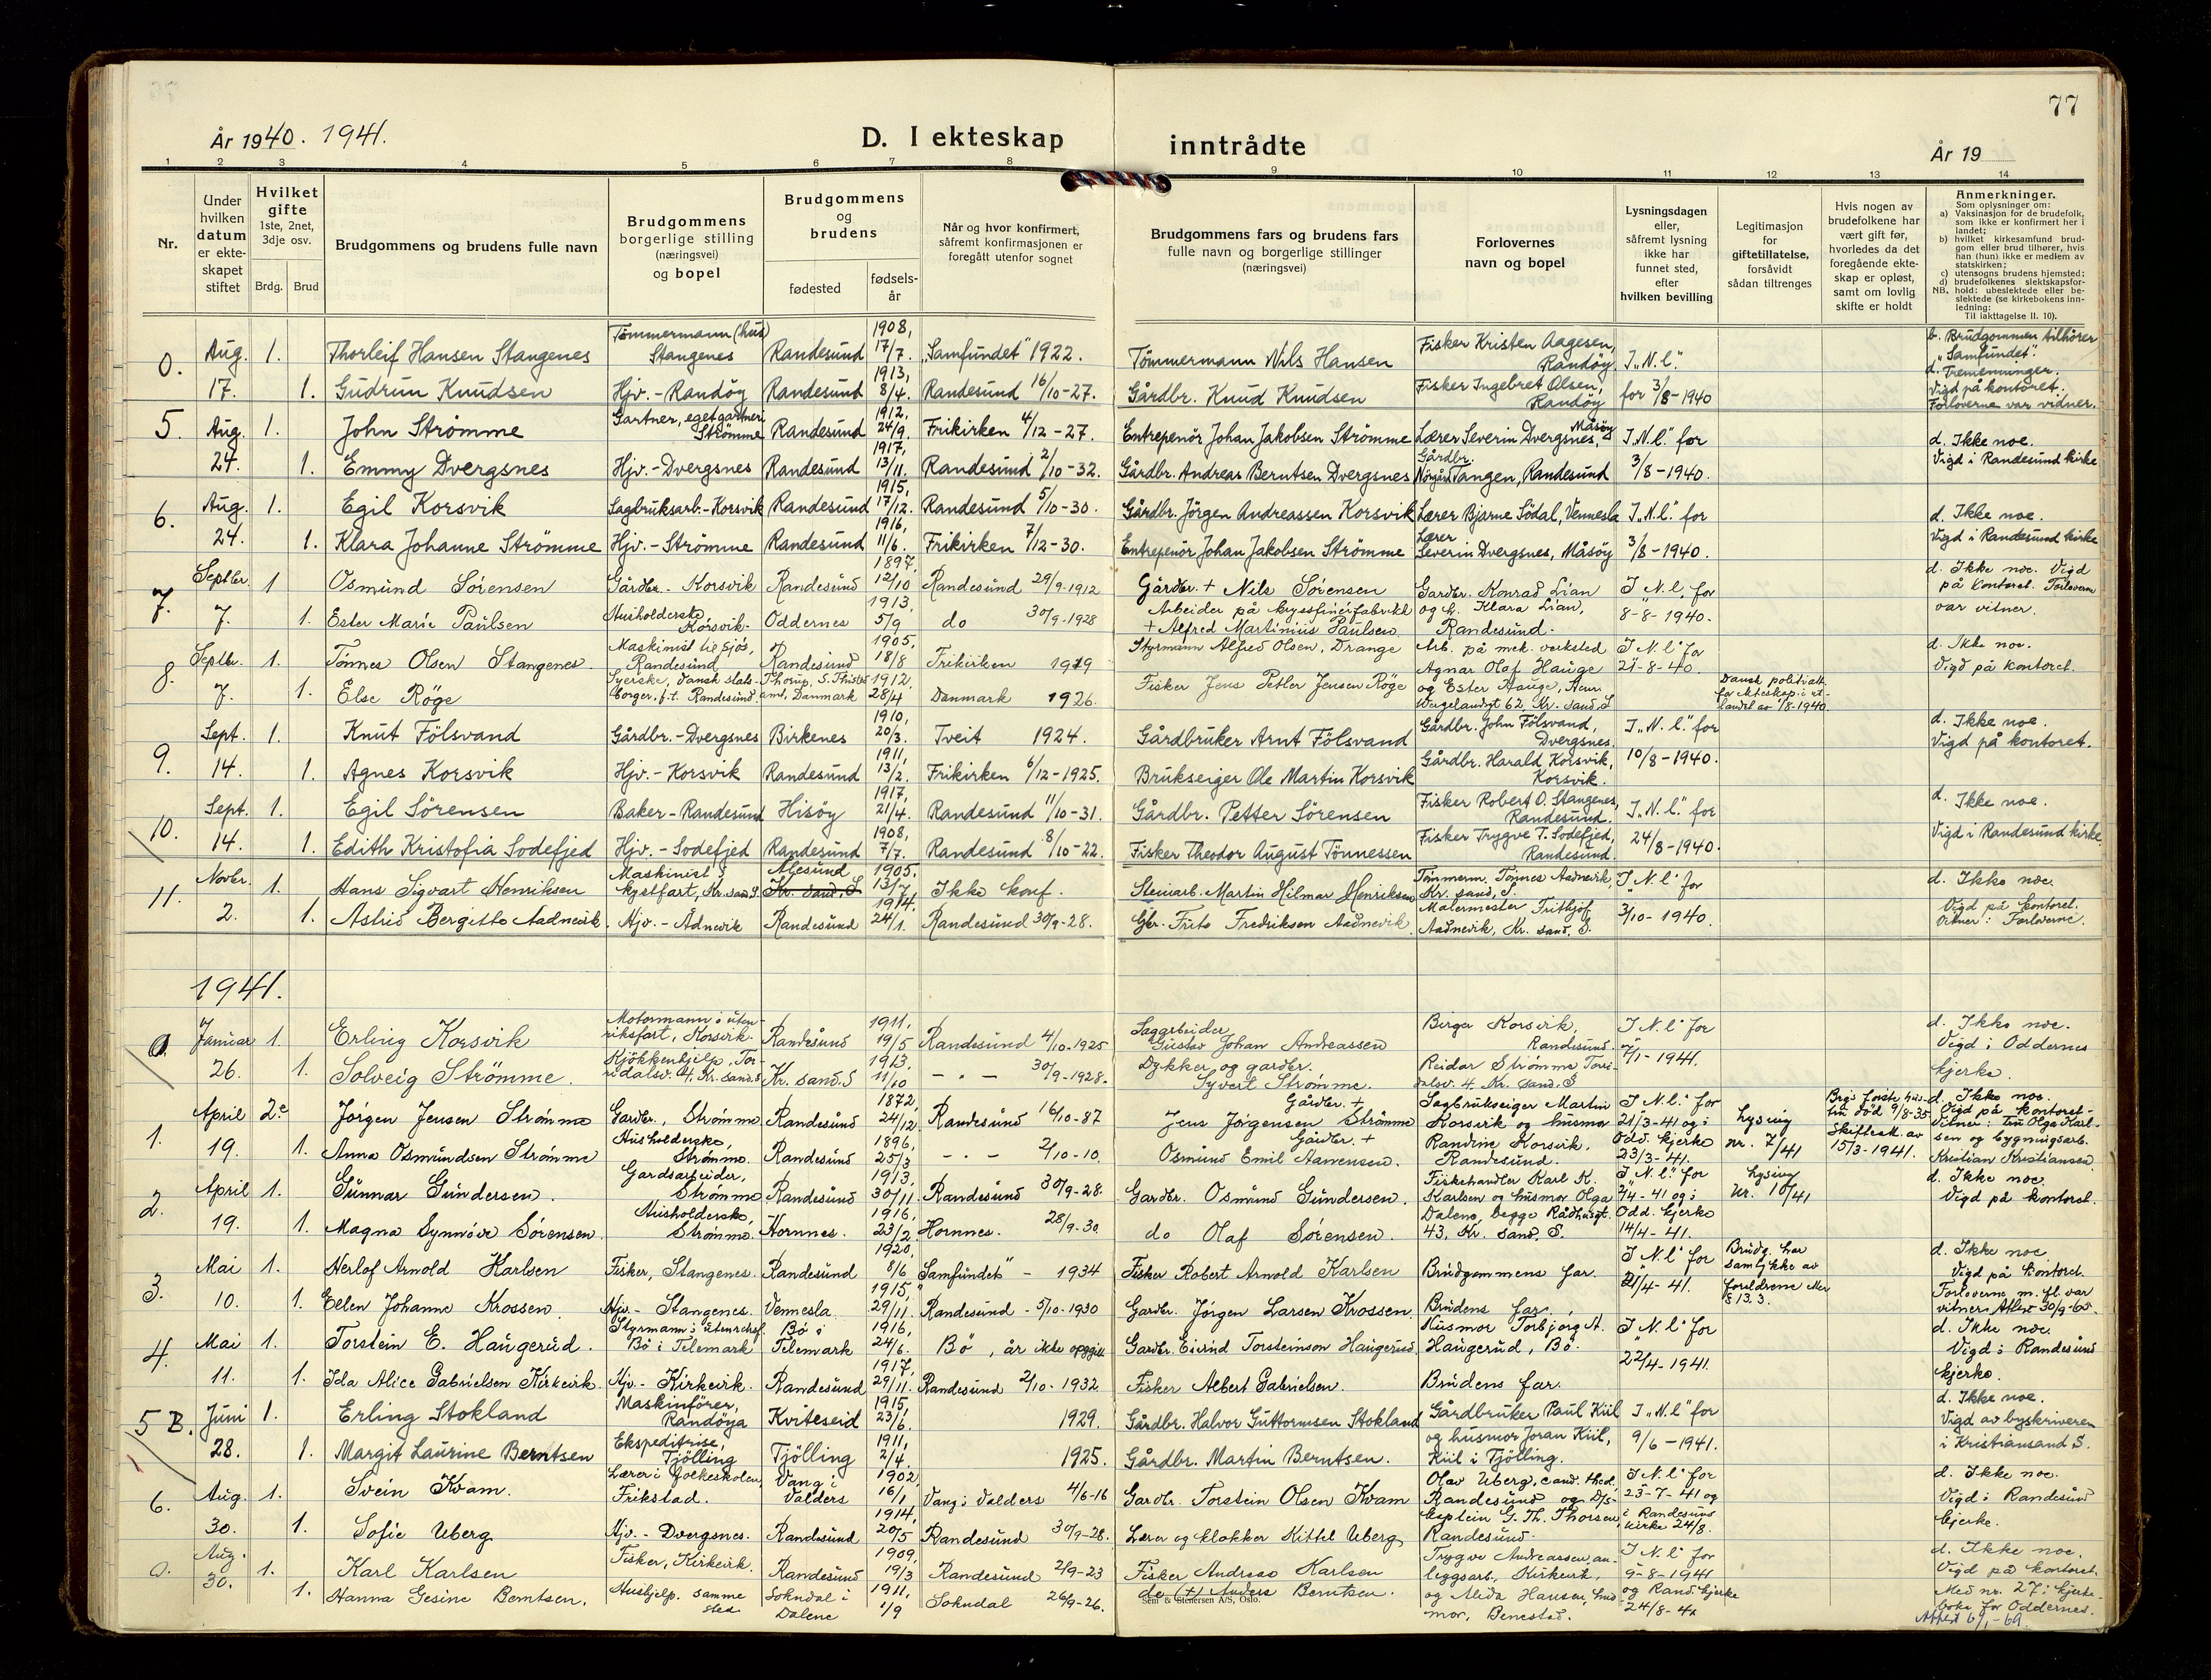 77
År 1940. 1941.
D. I ekteskap inntrådte
År 19
1 2 3 4 5 6 7 8 9 10 11 12 13 14
Nr.
Under hvilken datum er ekteskapet stiftet
Hvilket gifte 1ste, 2net, 3dje osv.
Brdg. Brud
Brudgommens og brudens fulle navn
Brudgommens borgerlige stilling (næringsvei) og bopel
Brudgommens og brudens
fødested
fødselsår
Når og hvor konfirmert, såfremt konfirmasjonen er foregått utenfor sognet
Brudgommens fars og brudens fars fulle navn og borgerlige stillinger (næringsvei)
Forlovernes navn og bopel
Lysningsdagen eller, såfremt lysning ikke har funnet sted, efter hvilken bevilling
Legitimasjon for giftetillatelse, forsåvidt sådan tiltrenges
Hvis nogen av brudefolkene har vært gift før, hvorledes da det foregående ekteskap er opløst, samt om lovlig skifte er holdt
Anmerkninger.
Som oplysninger om:
a) Vaksinasjon for de brudefolk, som ikke er konfirmert her i landet;
b) hvilket kirkesamfund brudgom eller brud tilhører, hvis han (hun) ikke er medlem av statskirken;
c) utensogns brudens hjemsted;
d) brudefolkenes slektskapsforhold: ubeslektede eller beslektede (se kirkebokens innledning:
NB. Til iakttagelse II. 10).
0. Aug. 1. Thorleif Hansen Stangenes Tømmermann (hus) Stangenes Randesund 1908, 17/7. "Samfundet" 1922. Tömmermann Nils Hansen Fisker Kristen Aagesen, Randöy I "N.l." b. Brudgommen tilhører "Samfundet".
17. 1. Gudrun Knudsen Hjv. - Randöy Randesund 1913, 8/4. Randesund 16/10-27. Gårdbr. Knud Knudsen Fisker Ingebret Olsen, Randöy for 3/8-1940 d. Tremenninger. Vigd på kontoret. Forloverne var vidner.
5. Aug. 1. John Strömme Gartner, eget gartneri Strömme Randesund 1912, 24/9. Frikirken 4/12-27. Entrepenör Johan Jakobsen Strömme Lærer Severin Dvergsnes, Måsöy I "N.l." for d. Ikke noe.
24. 1. Emmy Dvergsnes Hjv.-Dvergsnes Randesund 1917, 13/11. Randesund 2/10-32. Gårdbr. Andreas Berntsen Dvergsnes Gårdbr. Tangen, Randesund 3/8-1940. Vigd i Randesund kirke
6. Aug. 1. Egil Korsvik Sagbruksarb.-Korsvik Randesund 1915, 17/12. Randesund 5/10-30. Gårdbr. Jörgen Andreassen Korsvik Lærer Bjarne Södal, Vennesla I "N.l." for d. Ikke noe.
24. 1. Klara Johanne Strömme Hjv.-Strömme Randesund 1916, 11/6. Frikirken 7/12-30. Entrepenör Johan Jakobsen Strömme Lærer Severin Dvergsnes, Måsöy 3/8-1940. Vigd i Randesund kirke
7. Septbr. 1 Osmund Sørensen Gårdbr. Korsvik Randesund 1897, 12/10 Randesund 29/9-1912 Gårdbr. + Nils Sørensen Gardbr. Konrad Lian I N.l. for d. Ikke noe. Vigd på kontoret. Forloverne
7. 1. Ester Marie Paulsen Husholderske Korsvik. Oddernes 1913, 5/9 do 30/9-1928 Arbeider på kryssfinerfabrikk + Alfred Martinius Paulsen. og h. Klara Lian, Randesund. 8-8-1940. var vitner.
8. Septbr. 1. Tönnes Olsen Stangenes. Maskinist til sjøs, Randesund Randesund 1905, 18/8 Frikirken 1919 Styrmann Alfred Olsen, Drange Arb. på mek. verksted Agnar Olaf Hauge I N.l for 21-8-40. d. Ikke noe.
7. 1. Else Röge Syerske, dansk statsborger. f.t. Randesund. Thorup, S. Thisted amt, Danmark 1912, 28/4 Danmark 1926. Fisker Jens Petter Jensen Röge og Ester Hauge, Henr. Wergelandsgt 62, Kr. sand, S Dansk politiatt. for ekteskap i utlandet av 1/8-1940. Vigd på kontoret.
9. Sept. 1. Knut Fölsvand Gårdbr.-Dvergsnes Birkenes 1910, 20/3. Tveit 1924. Gårdbruker Arnt Fölsvand Gårdbr. John Fölsvand, Dvergsnes. I "N.l." for d. Ikke noe.
14. 1. Agnes Korsvik Hjv.-Korsvik Randesund 1911, 13/2. Frikirken 6/12-1925. Brukseiger Ole Martin Korsvik Gårdbr. Harald Korsvik, Korsvik. 10/8-1940. Vigd på kontoret.
10. Sept. 1. Egil Sörensen Baker-Randesund Hisöy 1917, 21/4. Randesund 11/10-31. Gårdbr. Petter Sörensen Fisker Robert O. Stangenes, Randesund. I "N.l." for d. Ikke noe.
14. 1. Edith Kristofia Sodefjed Hjv.-Sodefjed Randesund 1908, 7/7. Randesund 8/10-22. Fisker Theodor August Tönnessen Fisker Trygve T. Sodefjed, Randesund. 24/8-1940. Vigd i Randesund kirke
11. Novbr. 1. Hans Sigvart Henriksen Maskinist i kystfart, Kr. sand S. Ålesund Kr. sand, S 1905, 13/7 Ikke konf. Steinarb. Martin Hilmar Henriksen Tømmerm. Tönnes Aadnevik, Kr. sand, S. I N.l for d. Ikke noe.
2. 1. Astrid Bergitte Aadnevik. Hjv.-Ådnevik Randesund 1914, 24/1. Randesund 30/9-28. Gbr. Frits Fredriksen Aadnevik. Malermester Frithjof Aadnevik, Kr. sand, S. 3/10-1940. Vigd på kontoret. Vitner: Forloverne.
1941.
0. Januar 1. Erling Korsvik Motormann i utenriksfart, Korsvik. Randesund 1911, 19/5 Randesund 4/10-1925 Sagarbeider Gustav Johan Andreassen Birger Korsvik, Randesund. I N.l for d. Ikke noe.
26. 1. Solveig Strömme. Kjökkenhjelp, Tordalsv. 4, Kr. sand. S Kr. sand. S 1913, 11/10 - " - 30/9-1928. Dykker og gardbr. Syvert Strømme. Reidar Strömme Tordalsv. 4. Kr. sand. S 7/1-1941. Vigd i Oddernes kjerke.
1. April 2e Jørgen Jensen Strømme Gardbr., Strømme Randesund 1872, 24/12. Randesund 16/10-87 Gårdbr. + Jens Jørgensen Strømme Sagbrukseiger Martin Korsvik og husmor I N.l. for 21/3-41 og i Lysing Brgs første hustru død 9/8-35 d. Ikke noe. Vigd på kontoret.
19. 1. Anna Osmundsen Strømme Husholderske, Strømme. Randesund 1896, 25/3 - " - 2/10-10. Gårdbr. + Osmund Emil Aanensen. Randine Korsvik, Randesund. Odd. kjerke 23/3-41. nr. 7/41 Skifteatt. av 15/3-1941. Vitner: fru Olga Karlsen og bygningsarb. Kristian Kristiansen.
2. April 1. Gunnar Gundersen. Gardsarbeider, Strømme Randesund 1913, 30/11. Randesund 30/9-28. Gardbr. Osmund Gundersen. Fiskehandler Karl K. Karlsen og husmor Olga I N.l. for 7/4-41 og i Lysing Nr. 10/41 d. Ikke noe.
19. 1. Magna Synnöve Sørensen. Husholderske, Strømme. Hornnes. 1916, 23/2 Hornnes. 28/9-30. do Olaf Sørensen. Dalene, begge Rådhusgt. 43, Kr. sand, S. Odd. kjerke 14/4-41. Vigd på kontoret.
3. Mai 1. Herlof Arnold Karlsen Fisker, Stangenes. Randesund 1920, 8/6 "Samfundet" - 1934 Fisker Robert Arnold Karlsen Brudgommens far. I N.l for Brudg. har samtykke av d. Ikke noe. Vigd på kontoret.
10. 1. Ellen Johanne Krossen. Hjv. - Stangenes. Vennesla 1915, 29/11. Randesund - 5/10-1930 Gardbr. Jörgen Larsen Krossen. Brudens far. 21/4-41. foreldrene § 13. 3. Forloverne m. fl. var vitner. Attest 30/9-65.
4. Mai 1. Torstein E. Haugerud. Styrmann i utenrksf. Bö i Telemark Bö i Telemark 1916, 24/6. Bö, år ikke oppgitt Gardbr. Eivind Torsteinson Haugerud. Husmor Torbjørg A. Haugerud, Bö. I N.l for d. Ikke noe.
11. 1. Ida Alice Gabrielsen Kirkevik. Hjv.- Kirkevik. Randesund 1917, 29/11. Randesund 2/10-1932. Fisker Albert Gabrielsen. Brudens far. 22/4-1941. Vigd i Randesund kjerke.
5 B. Juni 1. Erling Stokland Maskinförer, Randöya Kviteseid 1915, 23/6. 1929. Gårdbr. Halvor Guttormsen Stokland Gårdbruker Paul Kiil I "N.l" for d. Ikke noe.
28. 1. Margit Laurine Berntsen Ekspeditrise, Tjölling Tjölling 1911, 2/4. 1925. Gårdbr. Martin Berntsen. og husmor Joran Kiil, Kiil i Tjölling. 9/6-1941. Vigd av byskriveren i Kristiansand S.
6. Aug. 1. Svein Kvam. Lærer i folkeskolen, Frikstad. Vang i Valders 1902, 16/1 Vang i Valders 4/6-16 Gardbr. Torstein Olsen Kvam Olav Uberg, cand. theol, Randesund og D/S- I N.l for 23-7-41 og d. Ikke noe.
30. 1. Sofie Uberg Hjv. - Dvergsnes. Randesund 1914, 20/5 Randesund 30/9-28. Lærer og klokker Kittel Uberg kaptein G. Th. Thorsen, Randesund. i Randesund kirke 24/8. Vigd i Randesund kjerke.
0. Aug. 1. Karl Karlsen Fisker, Kirkevik. Randesund 1909, 19/3 Randesund 2/9-23 Fisker Andreas Karlsen Trygve Andreassen, anleggsarb., Kirkevik, I N.l for 9-8-1941 d. Ikke noe. Vigd på kontoret.
30. 1. Hanna Gesine Berntsen. Hushjelp. samme sted Sokndal i Dalene 1911, 1/9 Sokndal 26/9-26. do (+) Anders Berntsen. og Alida Hansen, husmor, Benestad. og Rand. kjerke 24/8-41 Med nr. 27 i kjerkeboka for Oddernes.
Attest 6/1-69.
Sem & Stenersen A/S, Oslo.